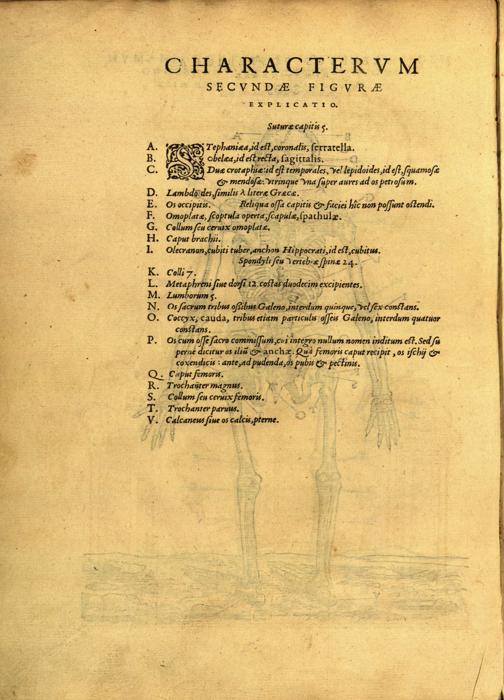 CHARACTERVM
SECVNDÆ FIGVRÆ
EXPLICATIO.
Suturæ capitis 5.
A. STephaniæa, id est, coronalis, serratella.
B. Obelæa, id est recta, sagittalis.
C. Duæ crotaphiæ: id est temporales, vel lepidoides, id est, squamosæ
& mendosæ: vtrinque vna super aures ad os petrosum.
D. Lambdoides, similis Λ literæ Græcæ.
E. Os occipitis. Reliqua ossa capitis & faciei hîc non possunt ostendi.
F. Omoplatæ, scoptula operta, scapulæ, spathulæ.
G. Collum seu ceruix omoplatæ.
H. Caput brachii.
I. Olecranon, cubiti tuber, anchon Hippocrati, id est, cubitus.
Spondyli seu vertebræ spinæ 24.
K. Colli 7.
L. Metaphreni siue dorsi 12. costas duodecim excipientes.
M. Lumborum 5.
N. Os sacrum tribus ossibus Galeno, interdum quinque, vel sex constans.
O. Coccyx, cauda, tribus etiam particulis osseis Galeno, interdum quatuor
constans.
P. Os cum osse sacro commissum, cui integro nullum nomen inditum est. Sed su
perne dicitur os iliũ & anchæ. Quà femoris caput recipit, os ischij &
coxendicis: ante, ad pudenda, os pubis & pectinis.
Q. Caput femoris.
R. Trochanter magnus.
S. Collum seu ceruix femoris.
T. Trochanter paruus.
V. Calcaneus siue os calcis, pterne.